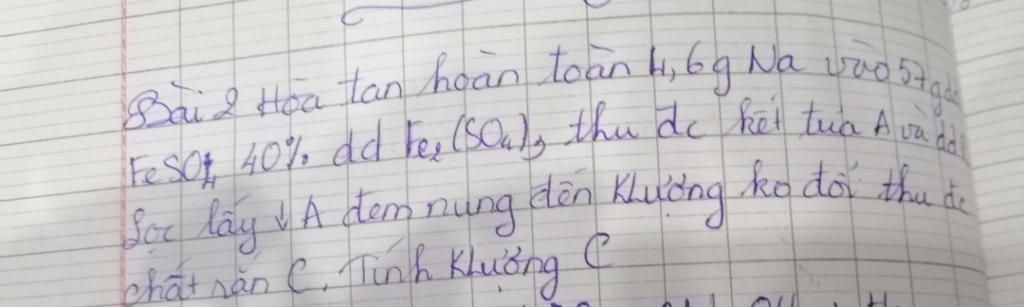 Bài 2 Hòa tan hoàn toàn 4,6g Na vào 57g dd
FeSO4 40% dd Fe2(SO4)3 thu dc kết tủa A và dd
Lọc lấy ↓ A đem nung đến Klượng ko đổi thu dc
chất rắn C. Tính Klượng C